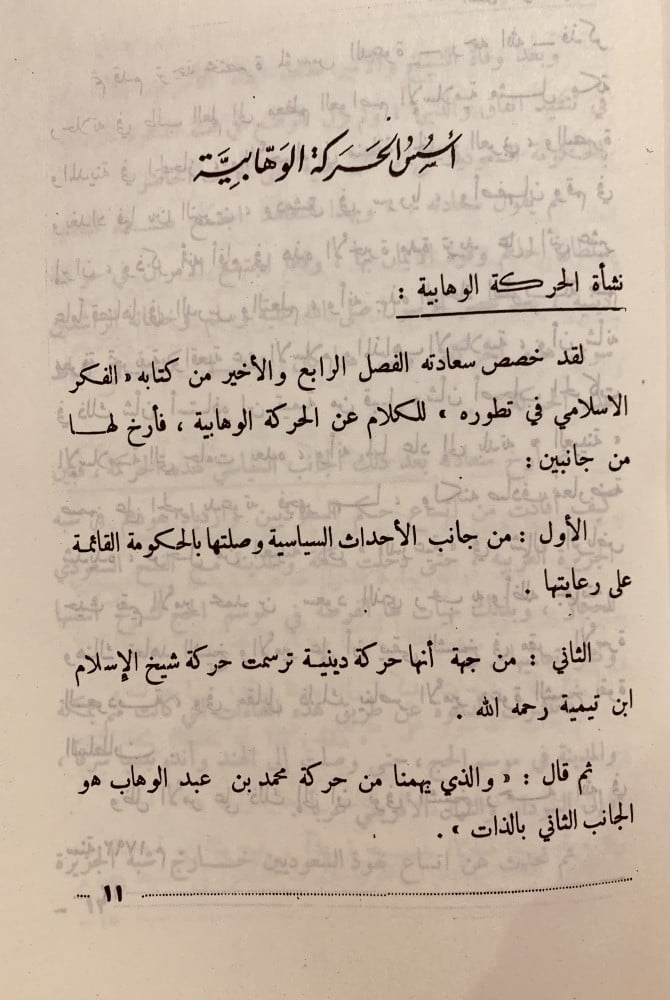 أُسُسُ الحَرَكةِ الوَهّابِيَّة
نشأة الحركة الوهابية :
لقد خصص سعادته الفصل الرابع والأخير من كتابه « الفكر
الاسلامي في تطوره » للكلام عن الحركة الوهابية ، فأرخ لها
من جانبين :
الأول : من جانب الأحداث السياسية وصلتها بالحكومة القائمة
على رعايتها .
الثاني : من جهة أنها حركة دينية ترسمت حركة شيخ الإسلام
ابن تيمية رحمه الله .
ثم قال : « والذي يهمنا من حركة محمد بن عبد الوهاب هو
الجانب الثاني بالذات » .
١١